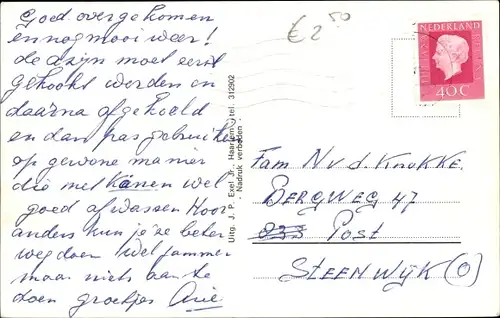 Goed overgekomen
en nog mooi weer!
de azijn moet eerst
gekookt worden en
daarna afgekoeld
en dan pas gebruike
op gewone manier
die met Kanen wel
goed afwassen Hoor
anders kun je ze beter
weg doen wel jammer
maar niets aan te
doen groetjes Arie
€ 2 50
NEDERLAND
40 C
Uitg. J. P. Exel Jr., Haarlem, tel. 312902
- Nadruk verboden -
Fam N v d. Knokke
Bergweg 47
Post
Steenwijk (O)